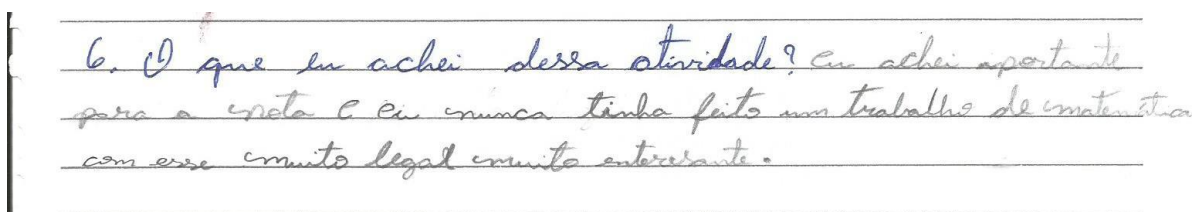 6. O que eu achei dessa atividade? eu achei aportante
para a nota e eu nunca tinha feito um trabalho de matemática
com esse muito legal muito enteresante.